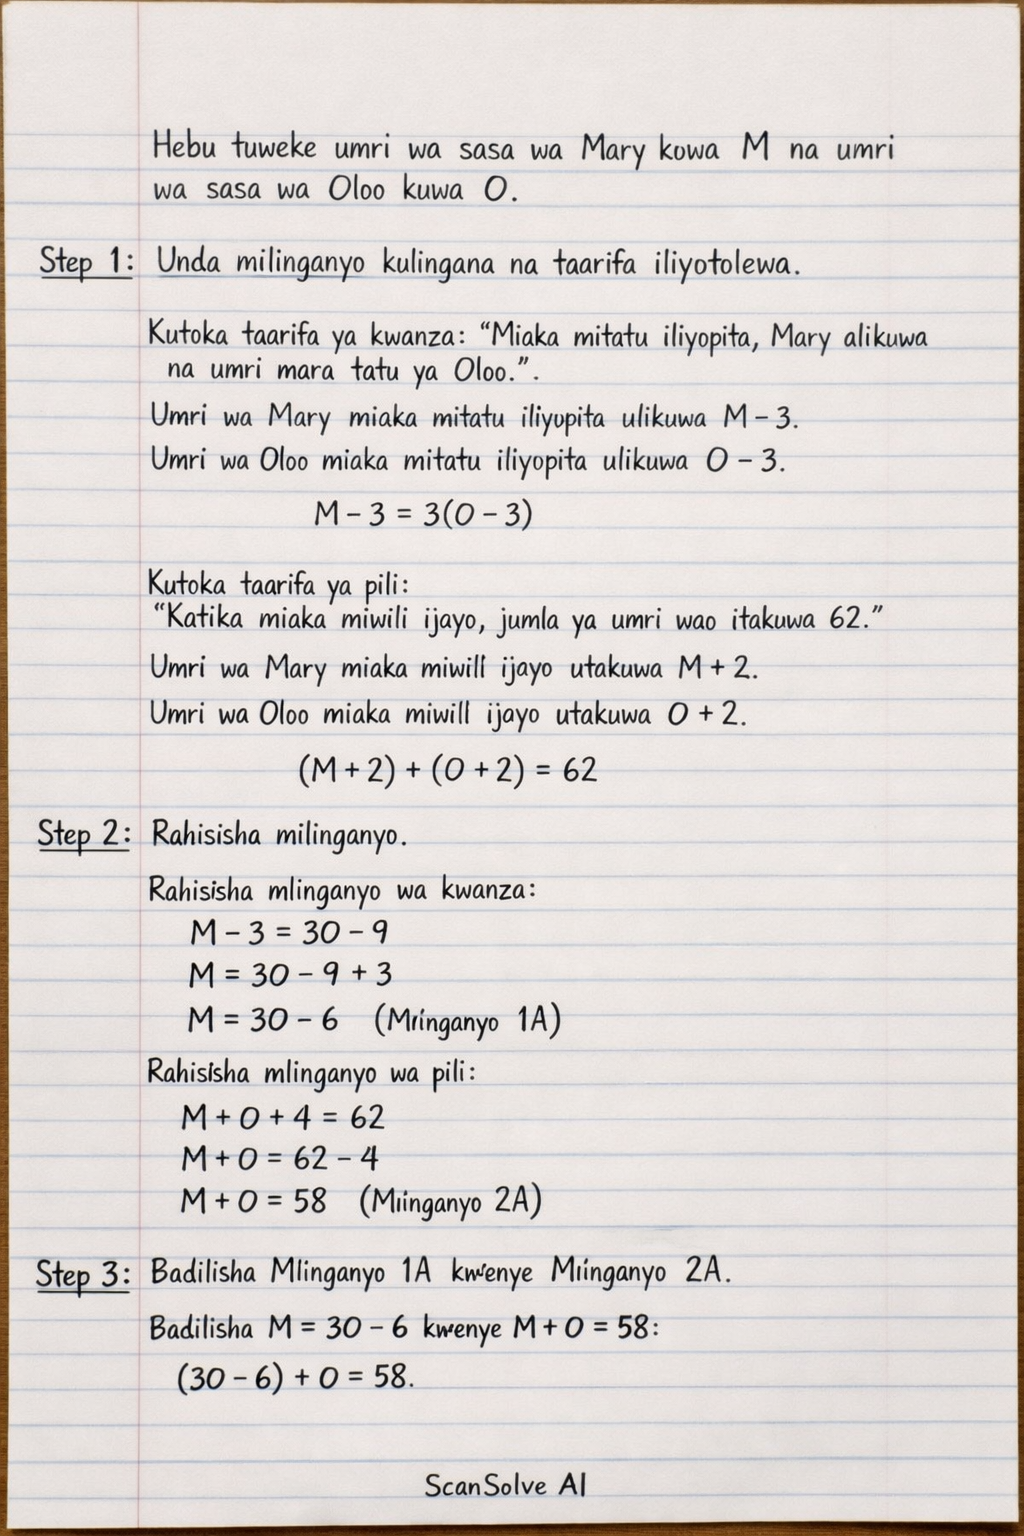 Hebu tuweke umri wa sasa wa Mary kowa M na umri
wa sasa wa Oloo kuwa O.
Step 1: Unda milinganyo kulingana na taarifa iliyotolewa.
Kutoka taarifa ya kwanza: “Miaka mitatu iliyopita, Mary alikuwa
na umri mara tatu ya Oloo.”.
Umri wa Mary miaka mitatu iliyupita ulikuwa M – 3.
Umri wa Oloo miaka mitatu iliyopita ulikuwa O – 3.
M – 3 = 3(O – 3)
Kutoka taarifa ya pili:
“Katika miaka miwili ijayo, jumla ya umri wao itakuwa 62.”
Umri wa Mary miaka miwill ijayo utakuwa M + 2.
Umri wa Oloo miaka miwill ijayo utakuwa O + 2.
(M + 2) + (O + 2) = 62
Step 2: Rahisisha milinganyo.
Rahisisha mlinganyo wa kwanza:
M – 3 = 3O – 9
M = 3O – 9 + 3
M = 3O – 6 (Mringanyo 1A)
Rahisisha mlinganyo wa pili:
M + O + 4 = 62
M + O = 62 – 4
M + O = 58 (Miinganyo 2A)
Step 3: Badilisha Mlinganyo 1A kwenye Miinganyo 2A.
Badilisha M = 3O – 6 kwenye M + O = 58:
(3O – 6) + O = 58.
ScanSolve AI